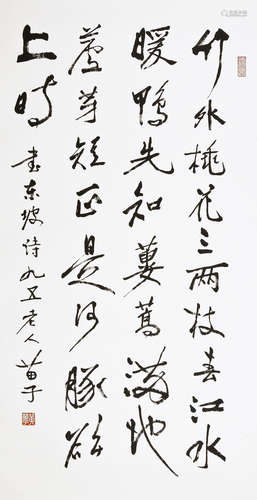 竹外桃花三两枝春江水
暖鸭先知蒌蒿满地
芦芽短正是河豚欲
上时
书东坡诗九五老人苗子